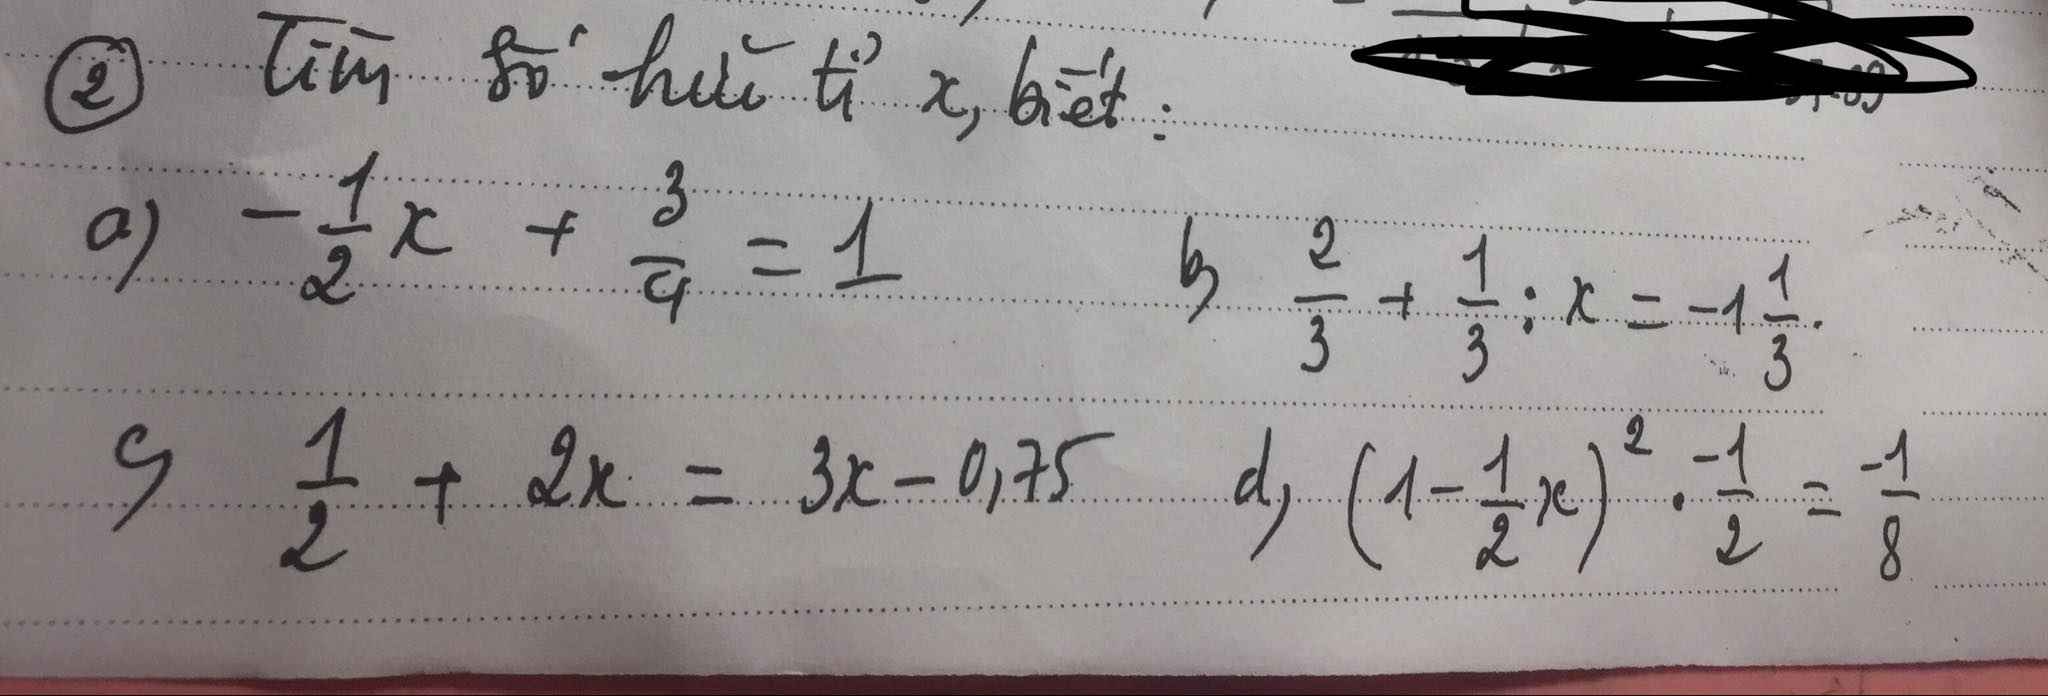 ② Tìm số hữu tỉ x, biết:
a) -1/2 x + 3/4 = 1 b) 2/3 + 1/3 : x = -1 1/3.
c) 1/2 + 2x = 3x - 0,75 d) (1 - 1/2 x)² . -1/2 = -1/8